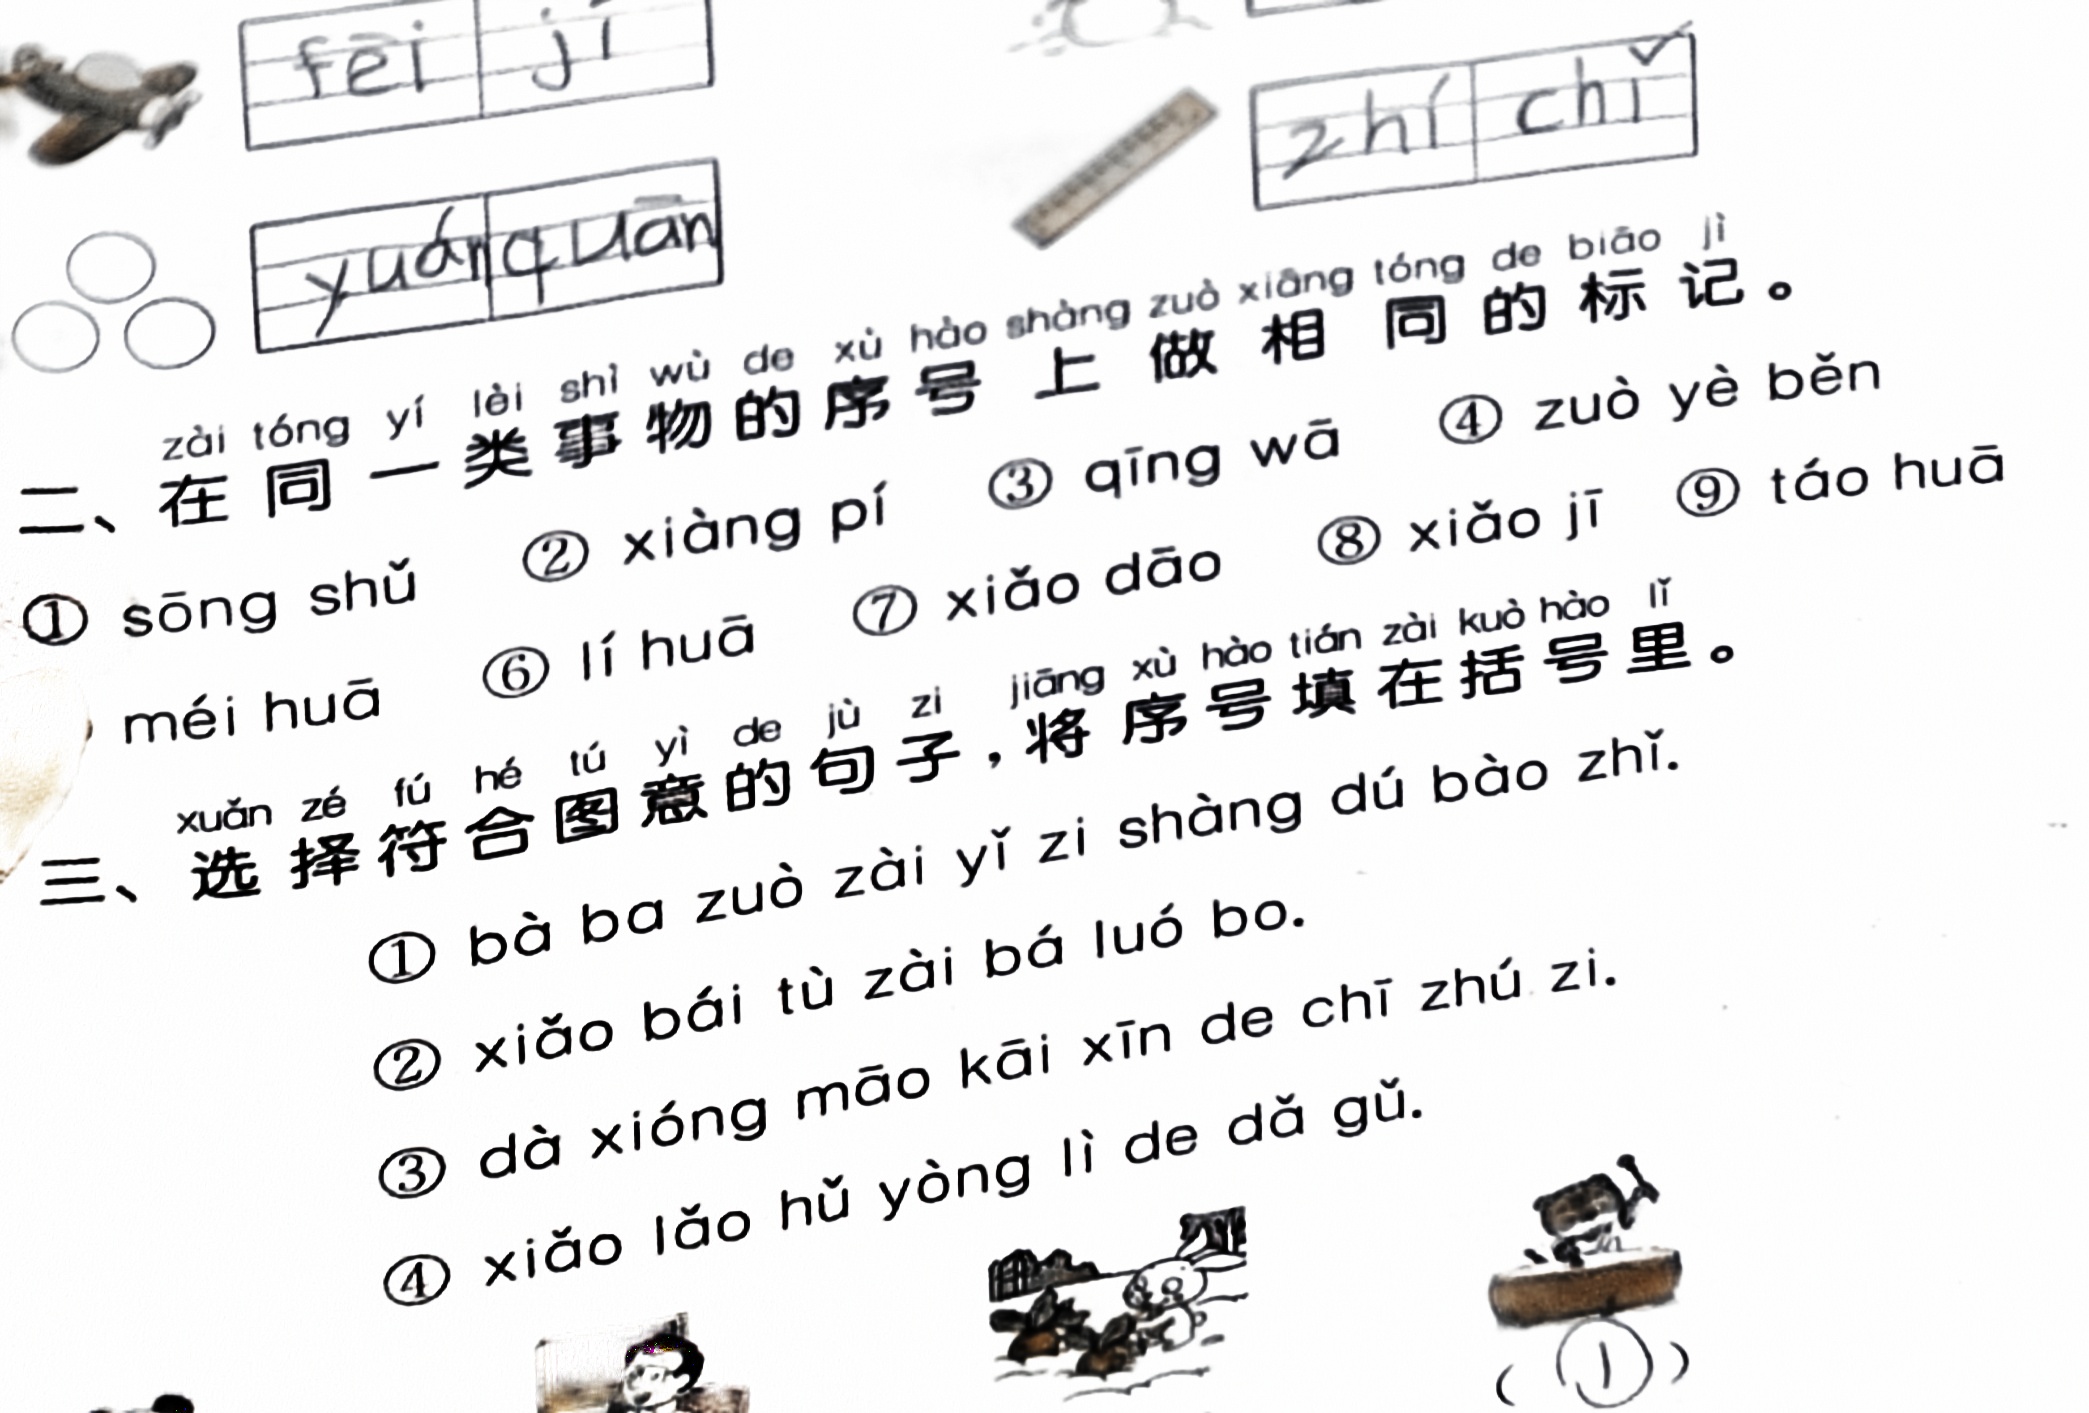 fēi jī
zhí chǐ
yuán quān
zài tóng yí lèi shì wù de xù hào shàng zuò xiāng tóng de biāo jì
二、在同一类事物的序号上做相同的标记。
① sōng shǔ ② xiàng pí ③ qīng wā ④ zuò yè běn
méi huā ⑥ lí huā ⑦ xiǎo dāo ⑧ xiǎo jī ⑨ táo huā
xuǎn zé fú hé tú yì de jù zi jiāng xù hào tián zài kuò hào lǐ
三、选择符合图意的句子，将序号填在括号里。
① bà ba zuò zài yǐ zi shàng dú bào zhǐ.
② xiǎo bái tù zài bá luó bo.
③ dà xióng māo kāi xīn de chī zhú zi.
④ xiǎo lǎo hǔ yòng lì de dǎ gǔ.
( ① )